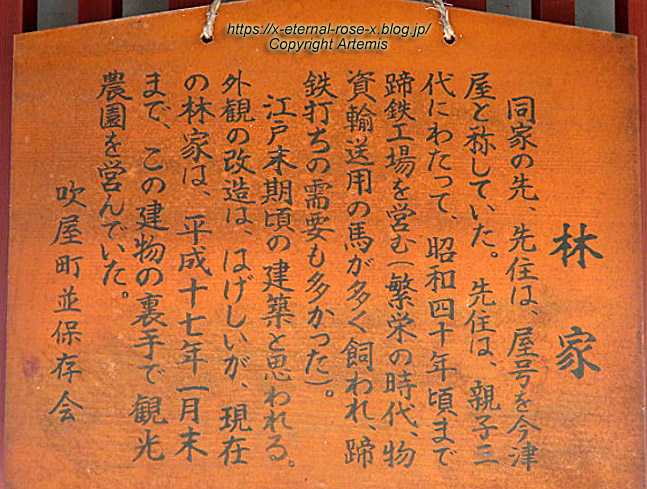 https://x-eternal-rose-x.blog.jp/
Copyright Artemis
林家
同家の先、先住は、屋号を今津
屋と称していた。先住は、親子三
代にわたって、昭和四十年頃まで
蹄鉄工場を営む(繁栄の時代、物
資輸送用の馬が多く飼われ、蹄
鉄打ちの需要も多かった)。
江戸末期頃の建築と思われる。
外観の改造は、はげしいが、現在
の林家は、平成十七年一月末
まで、この建物の裏手で観光
農園を営んでいた。
吹屋町並保存会